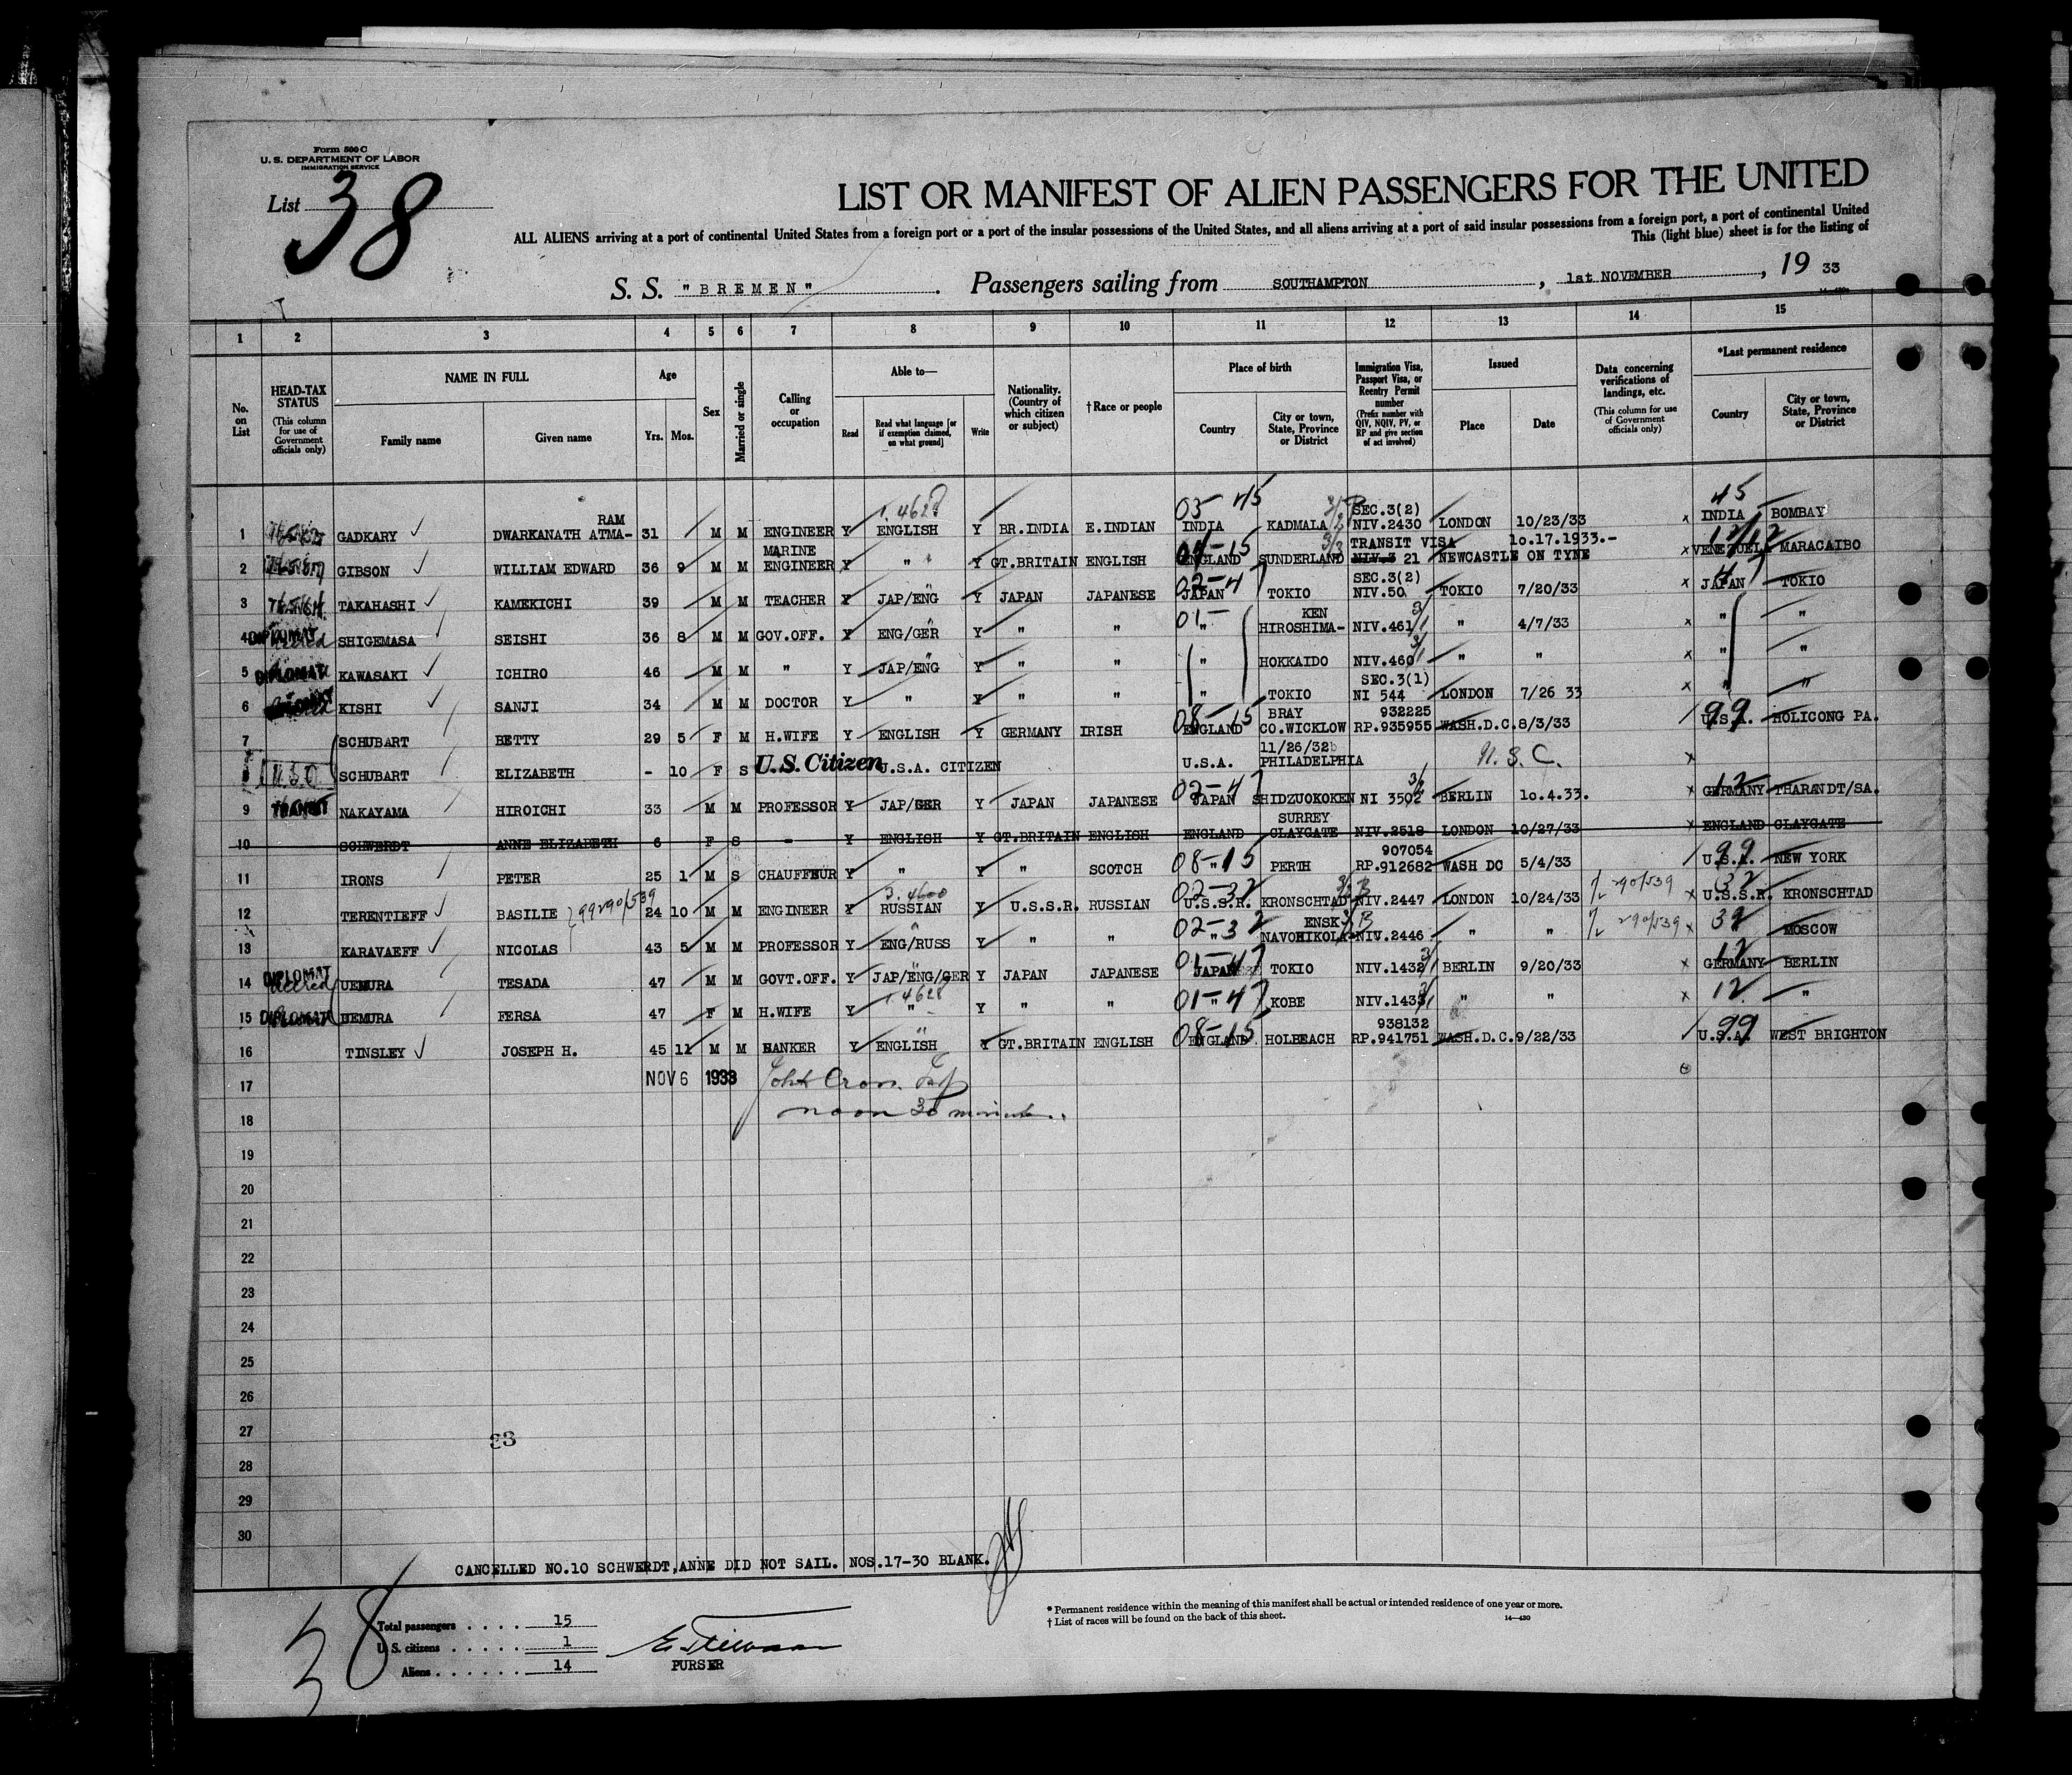 Form 500 C
U. S. DEPARTMENT OF LABOR
IMMIGRATION SERVICE
List 38
LIST OR MANIFEST OF ALIEN PASSENGERS FOR THE UNITED
ALL ALIENS arriving at a port of continental United States from a foreign port or a port of the insular possessions of the United States, and all aliens arriving at a port of said insular possessions from a foreign port, a port of continental United
This (light blue) sheet is for the listing of
S. S. "BREMEN". Passengers sailing from SOUTHAMPTON, 1st NOVEMBER, 19 33
1 2 3 4 5 6 7 8 9 10 11 12 13 14 15
No. on List
HEAD-TAX STATUS (This column for use of Government officials only)
NAME IN FULL
Family name
Given name
Age
Yrs. Mos.
Sex
Married or single
Calling or occupation
Able to—
Read
Read what language [or if exemption claimed, on what ground]
Write
Nationality. (Country of which citizen or subject)
†Race or people
Place of birth
Country
City or town, State, Province or District
Immigration Visa, Passport Visa, or Reentry Permit number (Prefix number with QIV, NQIV, PV, or RP and give section of act involved)
Issued
Place
Date
Data concerning verifications of landings, etc. (This column for use of Government officials only)
*Last permanent residence
Country
City or town, State, Province or District
1.4628 03-45 3/2 B 45
RAM SEC.3(2)
1 GADKARY ✓ DWARKANATH ATMA- 31 M M ENGINEER Y ENGLISH Y BR.INDIA E.INDIAN INDIA KADMALA NIV.2430 LONDON 10/23/33 x INDIA BOMBAY
MARINE 04-15 3/3 TRANSIT VISA 10.17.1933.- 12/12
2 GIBSON ✓ WILLIAM EDWARD 36 9 M M ENGINEER Y " Y GT.BRITAIN ENGLISH ENGLAND SUNDERLAND NIV.3 21 NEWCASTLE ON TYNE x VENEZUELA MARACAIBO
02-47 SEC.3(2) 47
3 TAKAHASHI ✓ KAMEKICHI 39 M M TEACHER Y JAP/ENG Y JAPAN JAPANESE JAPAN TOKIO NIV.50 TOKIO 7/20/33 x JAPAN TOKIO
01- KEN 3/1
4 DIPLOMAT SHIGEMASA SEISHI 36 8 M M GOV.OFF. Y ENG/GER Y " " " HIROSHIMA- NIV.461 " 4/7/33 x " "
3/1
5 DIPLOMAT KAWASAKI ✓ ICHIRO 46 M M " Y JAP/ENG Y " " " HOKKAIDO NIV.460 " " x " "
SEC.3(1)
6 KISHI ✓ SANJI 34 M M DOCTOR Y " Y " " " TOKIO NI 544 LONDON 7/26 33 x " "
08-15 BRAY 932225 99
7 SCHUBART BETTY 29 5 F M H.WIFE Y ENGLISH Y GERMANY IRISH ENGLAND CO.WICKLOW RP.935955 WASH.D.C. 8/3/33 U.S.A. HOLICONG PA.
11/26/32
8 U.S.C. SCHUBART ELIZABETH - 10 F S U.S. Citizen U.S.A. CITIZEN U.S.A. PHILADELPHIA U.S.C. x
02-47 3/2 12
9 TRANSIT NAKAYAMA HIROICHI 33 M M PROFESSOR Y JAP/GER Y JAPAN JAPANESE JAPAN SHIDZUOKOKEN NI 3502 BERLIN 10.4.33. x GERMANY THARANDT/SA.
SURREY
10 SCHWERDT ANNE ELIZABETH 6 F S - Y ENGLISH Y GT.BRITAIN ENGLISH ENGLAND CLAYGATE NIV.2518 LONDON 10/27/33 x ENGLAND CLAYGATE
08-15 907054 99
11 IRONS PETER 25 1 M S CHAUFFEUR Y " Y " SCOTCH " PERTH RP.912682 WASH DC 5/4/33 U.S.A. NEW YORK
99290/539 3.4600 02-32 3/2 B 290/539 32
12 TERENTIEFF ✓ BASILIE 24 10 M M ENGINEER Y RUSSIAN Y U.S.S.R. RUSSIAN U.S.S.R. KRONSCHTAD NIV.2447 LONDON 10/24/33 x U.S.S.R. KRONSCHTAD
02-32 ENSK B 290/539 32
13 KARAVAEFF ✓ NICOLAS 43 5 M M PROFESSOR Y ENG/RUSS Y " " " NAVONIKOLA- NIV.2446 " " x MOSCOW
01-47 3/1 12
14 DIPLOMAT Accred UEMURA TESADA 47 M M GOVT.OFF. Y JAP/ENG/GER Y JAPAN JAPANESE JAPAN TOKIO NIV.1432 BERLIN 9/20/33 x GERMANY BERLIN
1.4628 01-47 12
15 DIPLOMAT UEMURA FERSA 47 F M H.WIFE Y " Y " " " KOBE NIV.1433 " " x "
08-15 938132 99
16 TINSLEY ✓ JOSEPH H. 45 11 M M BANKER Y ENGLISH Y GT.BRITAIN ENGLISH ENGLAND HOLBEACH RP.941751 WASH.D.C. 9/22/33 U.S.A. WEST BRIGHTON
17 NOV 6 1933 John
18 noon 30 minute
19
20
21
22
23
24
25
26
27
33
28
29
30
CANCELLED NO.10 SCHWERDT,ANNE DID NOT SAIL. NOS.17-30 BLANK.
38
Total passengers . . . . 15
U. S. citizens . . . . . 1
Aliens . . . . . . 14
PURSER
* Permanent residence within the meaning of this manifest shall be actual or intended residence of one year or more.
† List of races will be found on the back of this sheet. 14—430